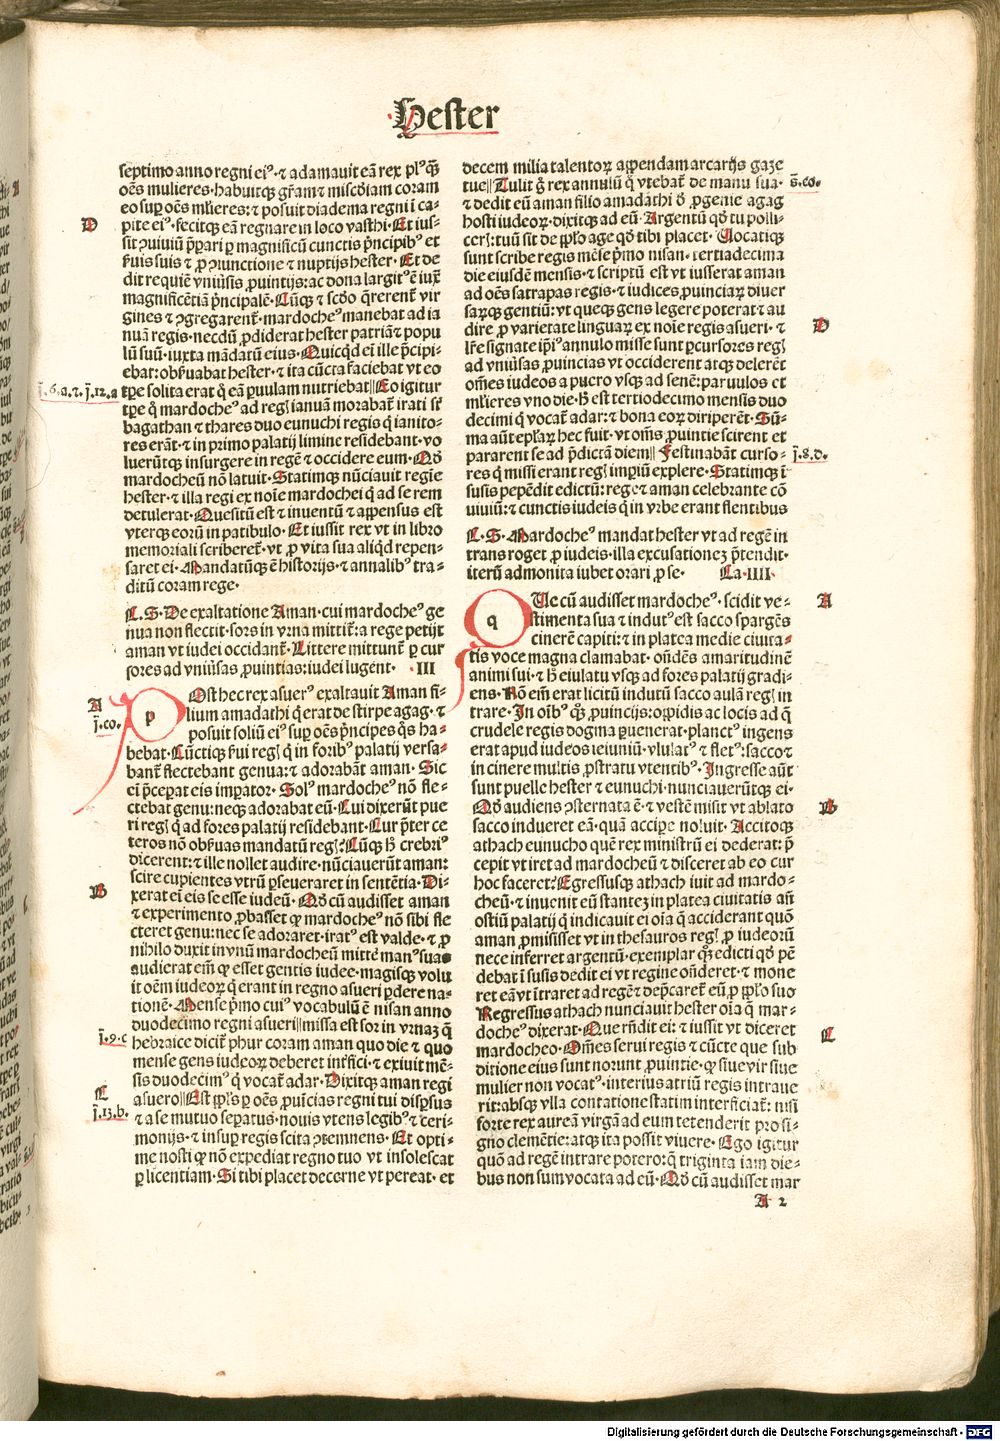 Hester
septimo anno regni ei⁹·⁊ adamauit eã rex pl⁹ꝙ̃
oẽs mulieres·habuitqꝫ gr̃am ⁊ miscd̃iam coram
eo suꝑ oẽs mĩeres:⁊ posuit diadema regni ĩ ca-
D
pite ei⁹·fecitqꝫ eã regnare in loco vasthi·Et ius-
sit ꝯuiuiũ p̃ꝑari ꝑ magnificũ cunctis p̃ncipib⁹ et
ẜuis suis ⁊ ꝓ ꝯiunctione ⁊ nuptijs hester·Et de
dit requiẽ vniũsis ꝓuintijs:ac dona largit⁹ ẽ iux̃
magnificẽtiã p̃ncipalẽ·Cũqꝫ ⁊ scd̃o q̃rerent̃ vir
gines ⁊ ꝯgregarent̃·mardoche⁹ manebat ad ia
nuã regis·necdũ ꝓdiderat hester patriã ⁊ popu
lũ suũ·iuxta mãdatũ eius·Quicq̃d eĩ ille p̃cipi-
ebat:obẜuabat hester·⁊ ita cũcta faciebat vt eo
ĩ·6·a·⁊·ĩ·12·a
tꝑe solita erat q̃ eã ꝑuulam nutriebat||Eo igitur
tꝑe q̃ mardoche⁹ ad regꝭ ianuã morabat̃ irati st̃
bagathan ⁊ thares duo eunuchi regis q̃ ianito-
res erãt·⁊ in primo palatij limine residebant·vo
luerũtqꝫ insurgere in regẽ ⁊ occidere eum·Qd̃
mardocheũ nõ latuit·Statimqꝫ nũciauit regie
hester·⁊ illa regi ex noĩe mardochei q̃ ad se rem
detulerat·Quesitũ est ⁊ inuentũ ⁊ appensus est
vterqꝫ eorũ in patibulo·Et iussit rex vt in libro
memoriali scriberet̃·vt ꝓ vita sua aliq̃d repen-
saret ei·Mandatũqꝫ ẽ historijs·⁊ annalib⁹ tra-
ditũ coram rege·
C·S·De exaltatione Aman·cui mardoche⁹ ge
nua non flectit·sors in vrna mittit̃:a rege petijt
aman vt iudei occidant̃·Littere mittunt̃ ꝑ cur
sores ad vniũsas ꝓuintias:iudei lugent· ·III
A
ĩ·co·
POst hec rex asuer⁹ exaltauit Aman fi-
lium amadathi q̃ erat de stirpe agag·⁊
posuit soliũ ei⁹ suꝑ oẽs p̃ncipes q̃s ha-
bebat·Cũctiqꝫ ẜui regꝭ q̃ in forib⁹ palatij versa-
bant̃ flectebant genua:⁊ adorabãt aman·Sic
ei p̃ceꝑat eis imꝑator·Sol⁹ mardoche⁹ nõ fle-
ctebat genu:neqꝫ adorabat eũ·Cui dixerũt pue
ri regꝭ q̃ ad fores palatij residebant·Cur p̃ter ce
teros nõ obẜuas mandatũ regꝭ?Cũqꝫ h̃ crebri⁹
dicerent:⁊ ille nollet audire·nũciauerũt aman:
scire cupientes vtrũ ꝑseueraret in sentẽtia·Di-
B
xerat eĩ eis se esse iudeũ·Qd̃ cũ audisset aman
⁊ experimento ꝓbasset ꝙ mardoche⁹ nõ sibi fle
cteret genu:nec se adoraret·irat⁹ est valde·⁊ ꝓ
nihilo duxit in vnũ mardocheũ mitt̃e man⁹ suas
audierat em̃ ꝙ esset gentis iudee·magisqꝫ volu
it oẽm iudeoꝝ q̃ erant in regno asueri ꝑdere na-
tionẽ·Mense p̃mo cui⁹ vocabulũ ẽ nisan anno
duodecimo regni asueri||missa est sor in vrnaꝫ q̃
ĩ·9·c
hebraice dicit̃ phur coram aman quo die ⁊ quo
mense gens iudeoꝝ deberet intfici·⁊ exiuit mẽ-
sis duodecim⁹ q̃ vocat̃ adar·Dixitqꝫ aman regi
E
ĩ·13·b·
asuero||Est ppl̃s ꝑ oẽs ꝓuicias regni tui disꝑsus
⁊ a se mutuo seꝑatus·nouis vtens legib⁹ ⁊ ceri-
monijs·⁊ insuꝑ regis scita ꝯtemnens·Et opti-
me nosti ꝙ non expediat regno tuo vt insolescat
ꝑ licentiam·Si tibi placet decerne vt pereat·et
decem milia talentoꝝ appendam arcarijs gaze
tue||Tulit g̃ rex annulũ q̃ vtebat̃ de manu sua·
s̃·co·
⁊ dedit eũ aman filio amadathi d̃ ꝓgenie agag
hosti iudeoꝝ·dixitqꝫ ad eũ·Argentũ qd̃ tu polli-
cerꝭ:tuũ sit de ppl̃o age qd̃ tibi placet·Uocatiqꝫ
sunt scribe regis mẽse p̃mo nisan·tertiadecima
die eiusdẽ mensis·⁊ scriptũ est vt iusserat aman
ad oẽs satrapas regis·⁊ iudices ꝓuinciaꝝ diuer
saꝝqꝫ gentiũ:vt queqꝫ gens legere poterat ⁊ au
D
dire ꝓ varietate linguaꝝ ex noĩe regis asueri·⁊
lr̃e signate ip̃i⁹ annulo misse sunt ꝑ cursores regꝭ
ad vniũsas ꝓuincias vt occiderent atqꝫ delerẽt
om̃es iudeos a puero vsqꝫ ad senẽ:paruulos et
mĩeres vno die·h̃ est tertiodecimo mensis duo
decimi q̃ vocat̃ adar:⁊ bona eoꝝ diriperẽt·Sũ-
ma aũt ep̃laꝝ hec fuit·vt om̃s ꝓuintie scirent et
pararent se ad p̃dictã diem||Festinabãt curso-
ĩ·8·d·
res q̃ missi erant regꝭ impiũ explere·Statimqꝫ ĩ
susis pepẽdit edictũ:rege ⁊ aman celebrante cõ
uiuiũ:⁊ cunctis iudeis q̃ in vrbe erant flentibus
C·S·Mardoche⁹ mandat hester vt ad regẽ in
trans roget ꝓ iudeis·illa excusationeꝫ p̃tendit·
iterũ admonita iubet orari ꝓ se· Ca·IIII·
A
QUe cũ audisset mardoche⁹·scidit ve-
stimenta sua ⁊ indut⁹ est sacco spargẽs
cinerẽ capiti:⁊ in platea medie ciuita-
tis voce magna clamabat·oñdẽs amaritudinẽ
animi sui·⁊ h̃ eiulatu vsqꝫ ad fores palatij gradi-
ens·Nõ em̃ erat licitũ indutũ sacco aulã regꝭ in
trare·In oĩb⁹ q̃ꝫ ꝓuincijs:oppidis ac locis ad q̃
crudele regis dogma ꝑuenerat·planct⁹ ingens
erat apud iudeos ieiuniũ·vlulat⁹ ⁊ flet⁹:sacco ⁊
in cinere multis ꝓ stratu vtentib⁹·Ingresse aũt
sunt puelle hester ⁊ eunuchi·nunciauerũtqꝫ ei·
B
Qd̃ audiens ꝯsternata ẽ·⁊ vestẽ misit vt ablato
sacco indueret eã·quã acciꝑe noluit·Accitoqꝫ
athach eunucho quẽ rex ministrũ ei dederat:p̃
cepit vt iret ad mardocheũ ⁊ disceret ab eo cur
hoc faceret?Egressusqꝫ athach iuit ad mardo-
cheũ·⁊ inuenit eũ stanteꝫ in platea ciuitatis añ
ostiũ palatij q̃ indicauit ei oĩa q̃ acciderant quõ
aman ꝓmisisset vt in thesauros regꝭ ꝓ iudeorũ
nece inferret argentũ·exemplar q̃ꝫ edicti qd̃ pẽ
debat ĩ susis dedit ei vt regine oñderet·⁊ mone
ret eã vt ĩtraret ad regẽ ⁊ dep̃caret̃ eũ ꝓ ppl̃o suo
Regressus athach nunciauit hester oĩa q̃ mar-
C
doche⁹ dixerat·Que rñdit ei:⁊ iussit vt diceret
mardocheo·Om̃es serui regis ⁊ cũcte que sub
ditione eius sunt norunt ꝓuintie·ꝙ siue vir siue
mulier non vocat⁹·interius atriũ regis intraue
rit:absqꝫ vlla contatione statim interficiat̃:nisĩ
forte rex aureã virgã ad eum tetenderit pro si-
gno clemẽtie:atqꝫ ita possit viuere·Ego igitur
quõ ad regẽ intrare potero:q̃ triginta iam die-
bus non sum vocata ad eũ·Qd̃ cũ audisset mar
A 2
Digitalisierung gefördert durch die Deutsche Forschungsgemeinschaft - DFG